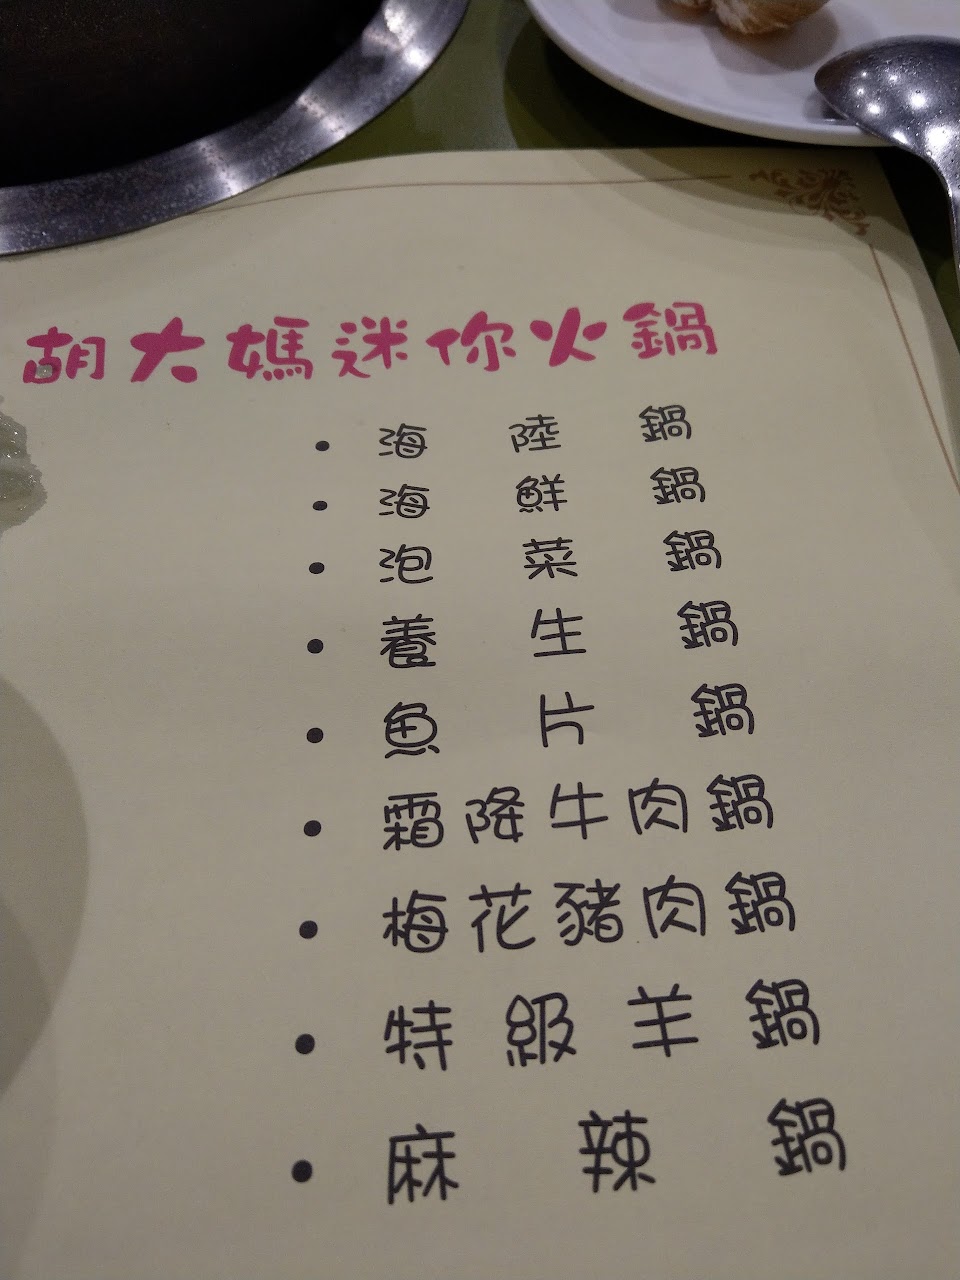 胡大媽迷你火鍋
• 海陸鍋
• 海鮮鍋
• 泡菜鍋
• 養生鍋
• 魚片鍋
• 霜降牛肉鍋
• 梅花豬肉鍋
• 特級羊鍋
• 麻辣鍋